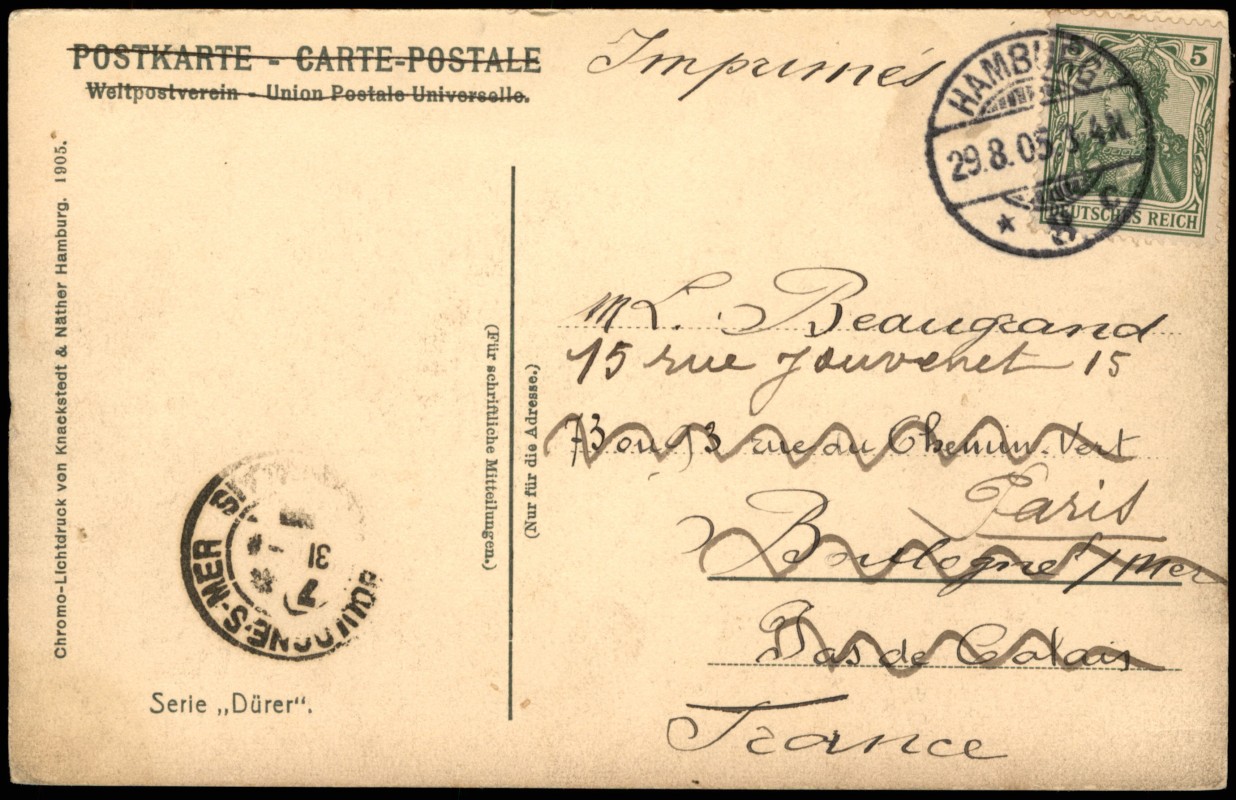 POSTKARTE - CARTE-POSTALE
Weltpostverein - Union Postale Universelle.
Imprimés
HAMBURG
29.8.05.
C
5
DEUTSCHES REICH
Chromo-Lichtdruck von Knackstedt & Näther Hamburg. 1905.
(Für schriftliche Mitteilungen.)
(Nur für die Adresse.)
M L. Beaugrand
15 rue Jouvenet 15
73 ou 93 rue du Chemin Vert
Paris
Boulogne s/Mer
Pas de Calais
France
BOULOGNE-S-MER
31
7
Serie „Dürer“.